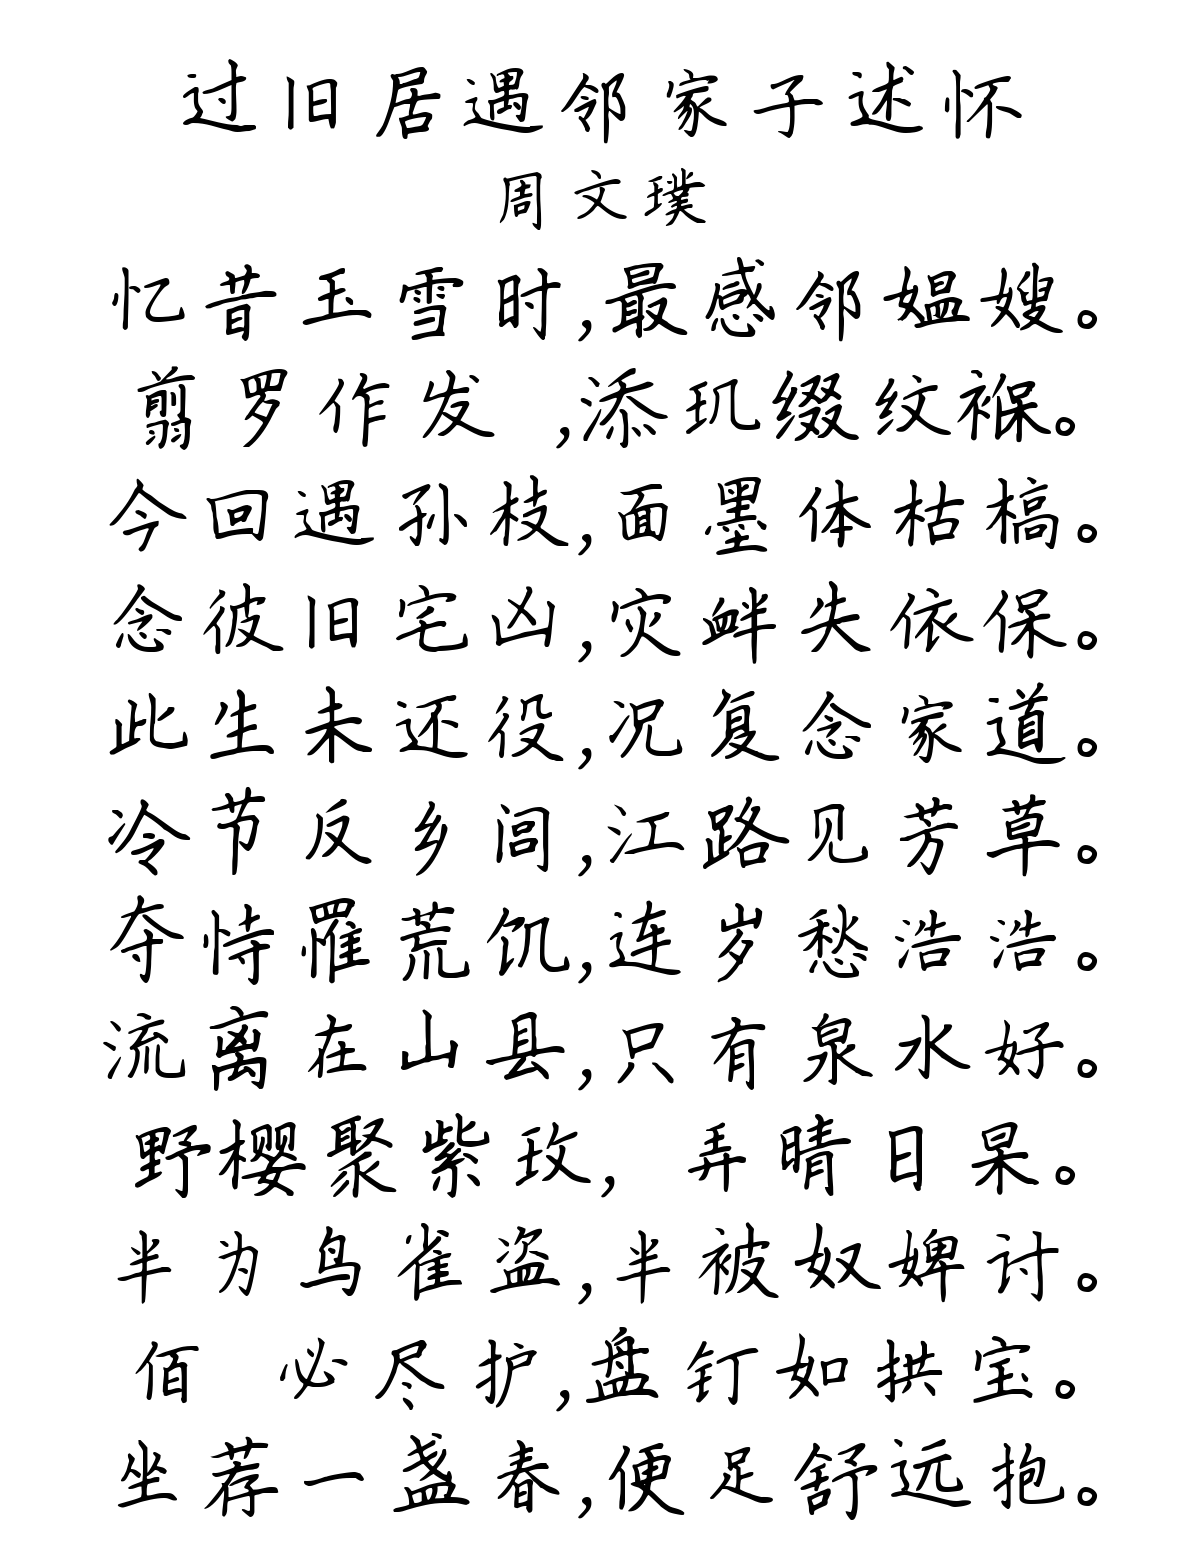 过旧居遇邻家子述怀
周文璞
忆昔玉雪时,最感邻媪嫂。
翦罗作发 ,添玑缀纹褓。
今回遇孙枝,面墨体枯槁。
念彼旧宅凶,灾衅失依保。
此生未还役,况复念家道。
冷节反乡闾,江路见芳草。
夺恃罹荒饥,连岁愁浩浩。
流离在山县,只有泉水好。
野樱聚紫玫, 弄晴日杲。
半为鸟雀盗,半被奴婢讨。
佰 必尽护,盘钉如拱宝。
坐荐一盏春,便足舒远抱。